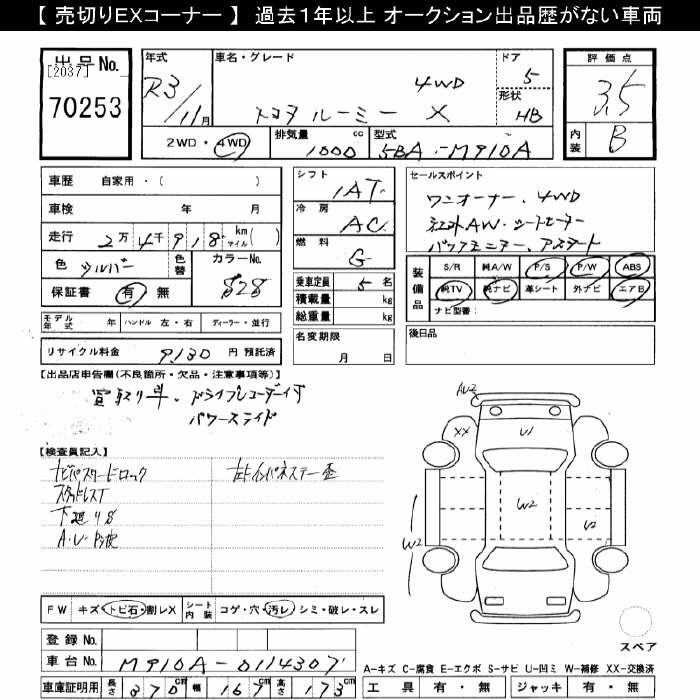 【 売切りEXコーナー 】 過去1年以上 オークション出品歴がない車両
出品No.
[2037]
70253
年式
R3/11月
車名・グレード
4WD
トヨタ ルーミー X
ドア
5
形状
HB
評価点
3.5
内装
B
2WD・4WD
排気量
1000
cc
型式
5BA-M910A
車歴 自家用・( )
車検 年 月
走行 2万4千918 km マイル( )
色 シルバー
色替
カラーNo.
S28
保証書 有・無
モデル年式 年
ハンドル 左・右
ディーラー・並行
リサイクル料金 9,130 円 預託済
シフト
IAT
冷房
AC
燃料
G
乗車定員 5 名
積載量 kg
総重量 kg
名変期限
月 日
セールスポイント
ワンオーナー、4WD
社外AW・シートヒーター
装備品
S/R 純A/W P/S P/W ABS
純TV 純ナビ 革シート 外ナビ エアB
ナビ型番:
後日品
【出品店申告欄(不良箇所・欠品・注意事項等)】
買取り車、ドライブレコーダーイプ
パワースライド
【検査員記入】
ナビパスワードロック
スタッドレスT
下廻りS
左Fインパネステー歪
AW2
XX
U1
W2
W2
U2
スペア
FW キズ・トビ石・割レX
シート内装 コゲ・穴・汚レ・シミ・破レ・スレ
登録No.
車台No. M910A-0114307
車庫証明用 長さ 370 cm 幅 167 cm 高さ 173 cm
A-キズ C-腐食 E-エクボ S-サビ U-凹ミ W-補修 XX-交換済
工具 有・無 ジャッキ 有・無